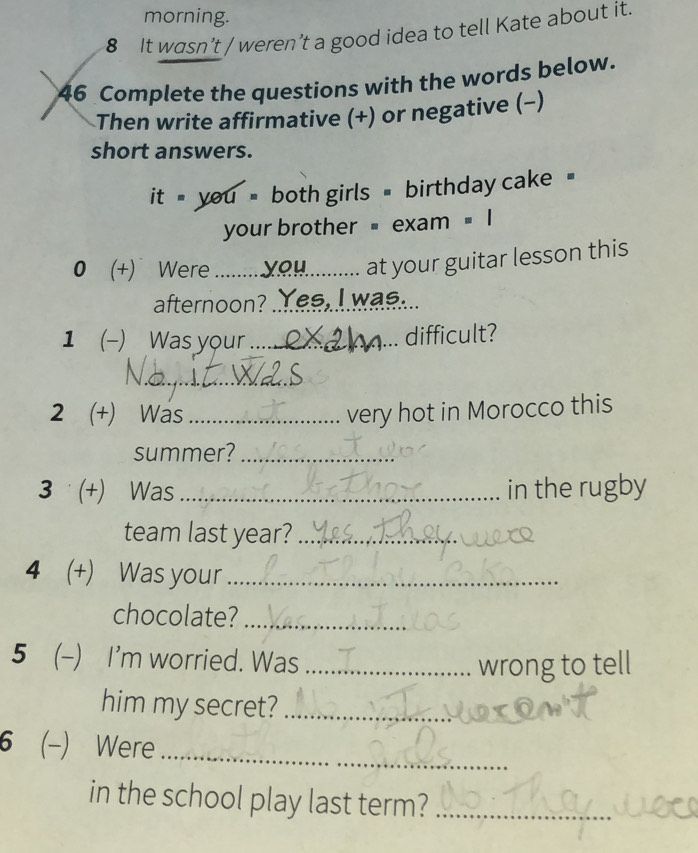 morning.
8 It wasn't / weren't a good idea to tell Kate about it.
46 Complete the questions with the words below.
Then write affirmative (+) or negative (–)
short answers.
it ▪ you ▪ both girls ▪ birthday cake ▪
your brother ▪ exam ▪ I
0 (+) Were ........you........ at your guitar lesson this
afternoon? Yes, I was.
1 (–) Was your .....exam... difficult?
No, it was
2 (+) Was ......it...... very hot in Morocco this
summer? Yes it was
3 (+) Was ...your brother... in the rugby
team last year? Yes, they were
4 (+) Was your ...birthday cake...
chocolate? Yes, it was
5 (–) I'm worried. Was ...I... wrong to tell
him my secret? No, weren't
6 (–) Were ...both girls...
in the school play last term? No, They were